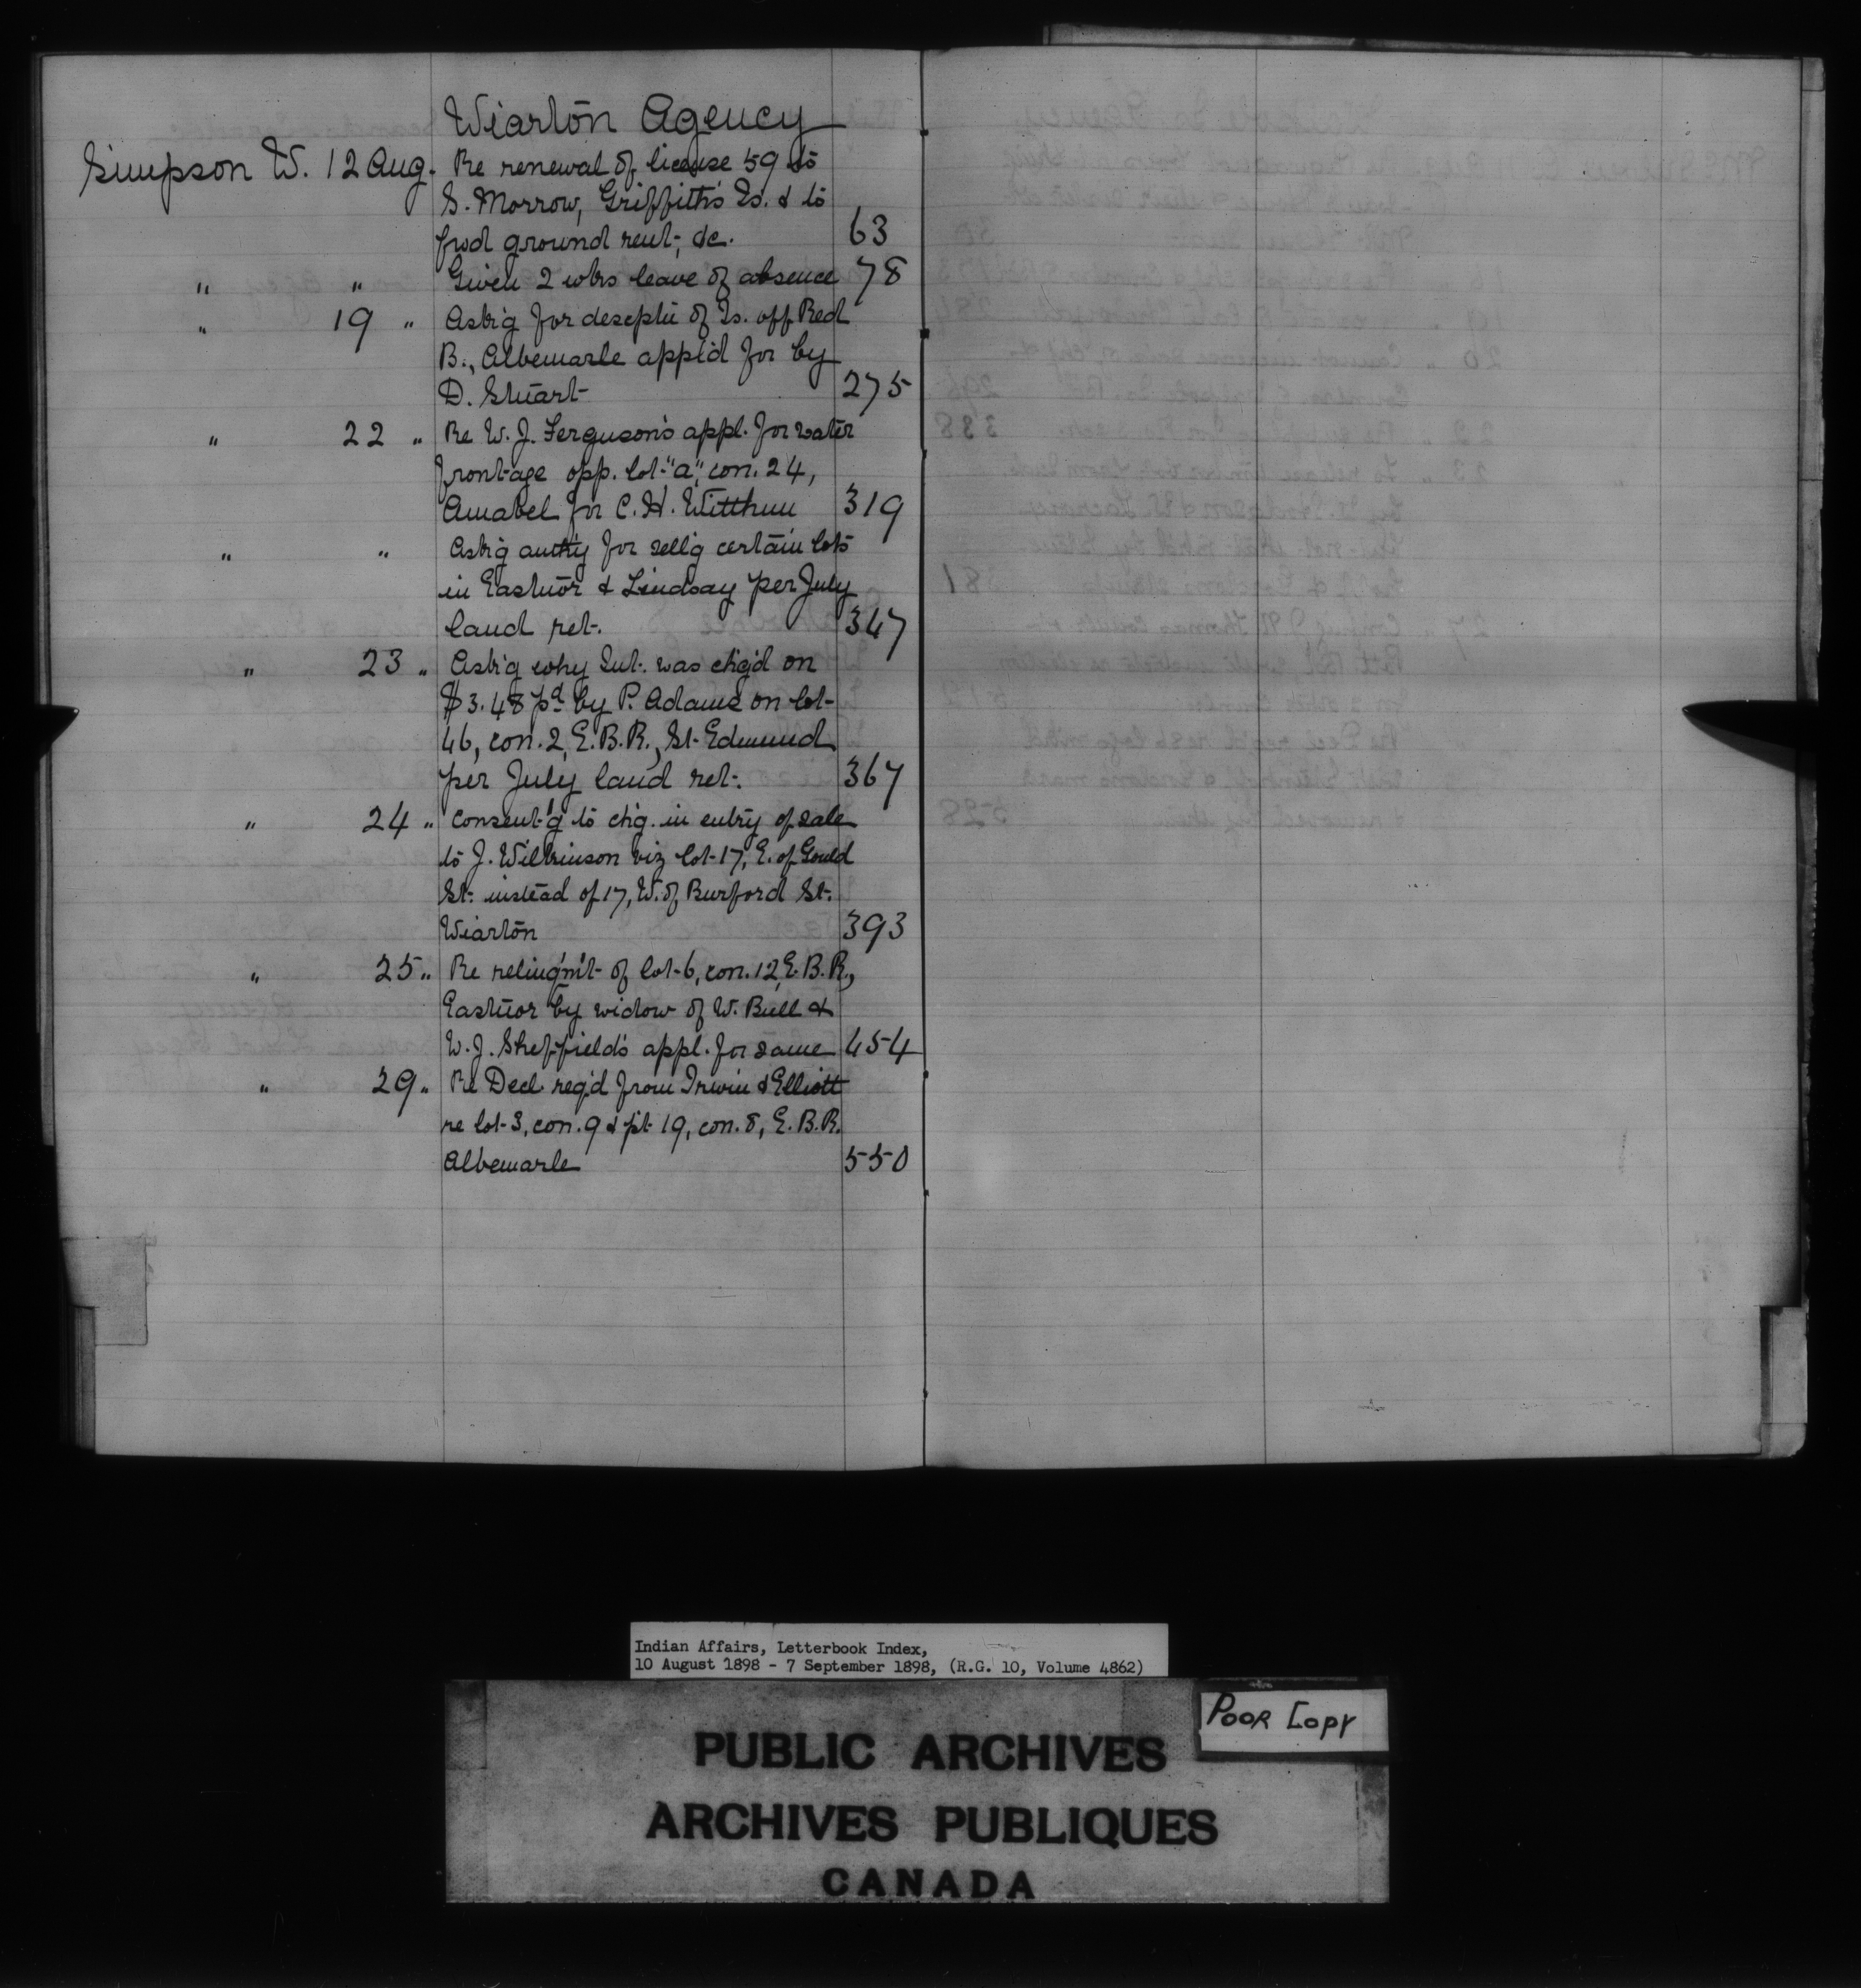 Wiarton Agency
Simpson W. 12 Aug. Re renewal of license 59 to
S. Morrow, Griffith's Is. & to
fwd ground rent, &c. 63
" " Given 2 wks leave of absence 78
" 19 " Ask'g for descptn of Is. off Red
B., Albemarle appl'd for by
D. Stuart 275
" 22 " Re W. J. Ferguson's appl. for water
frontage opp. lot "a", con. 24,
Amabel for C. H. Witthun 319
" " Ask'g auth'y for sell'g certain lots
in Eastnor & Lindsay per July
land ret. 347
" 23 " Ask'g why Int. was chg'd on
$3.48 pd by P. Adams on lot
46, con. 2, E.B.R., St. Edmund
per July land ret. 367
" 24 " Consent'g to chg. in entry of sale
to J. Wilkinson viz lot 17, E. of Gould
St. instead of 17, W. of Burford St.
Wiarton 393
" 25 " Re relinq'm't of lot 6, con. 12, E.B.R.,
Eastnor by widow of W. Bull &
W. J. Sheffield's appl. for same 454
" 29 " Re Decl. req'd from Irwin & Elliott
re lot 3, con. 9 & pt 19, con. 8, E.B.R.
Albemarle 550
Indian Affairs, Letterbook Index,
10 August 1898 - 7 September 1898, (R.G. 10, Volume 4862)
Poor Copy
PUBLIC ARCHIVES
ARCHIVES PUBLIQUES
CANADA